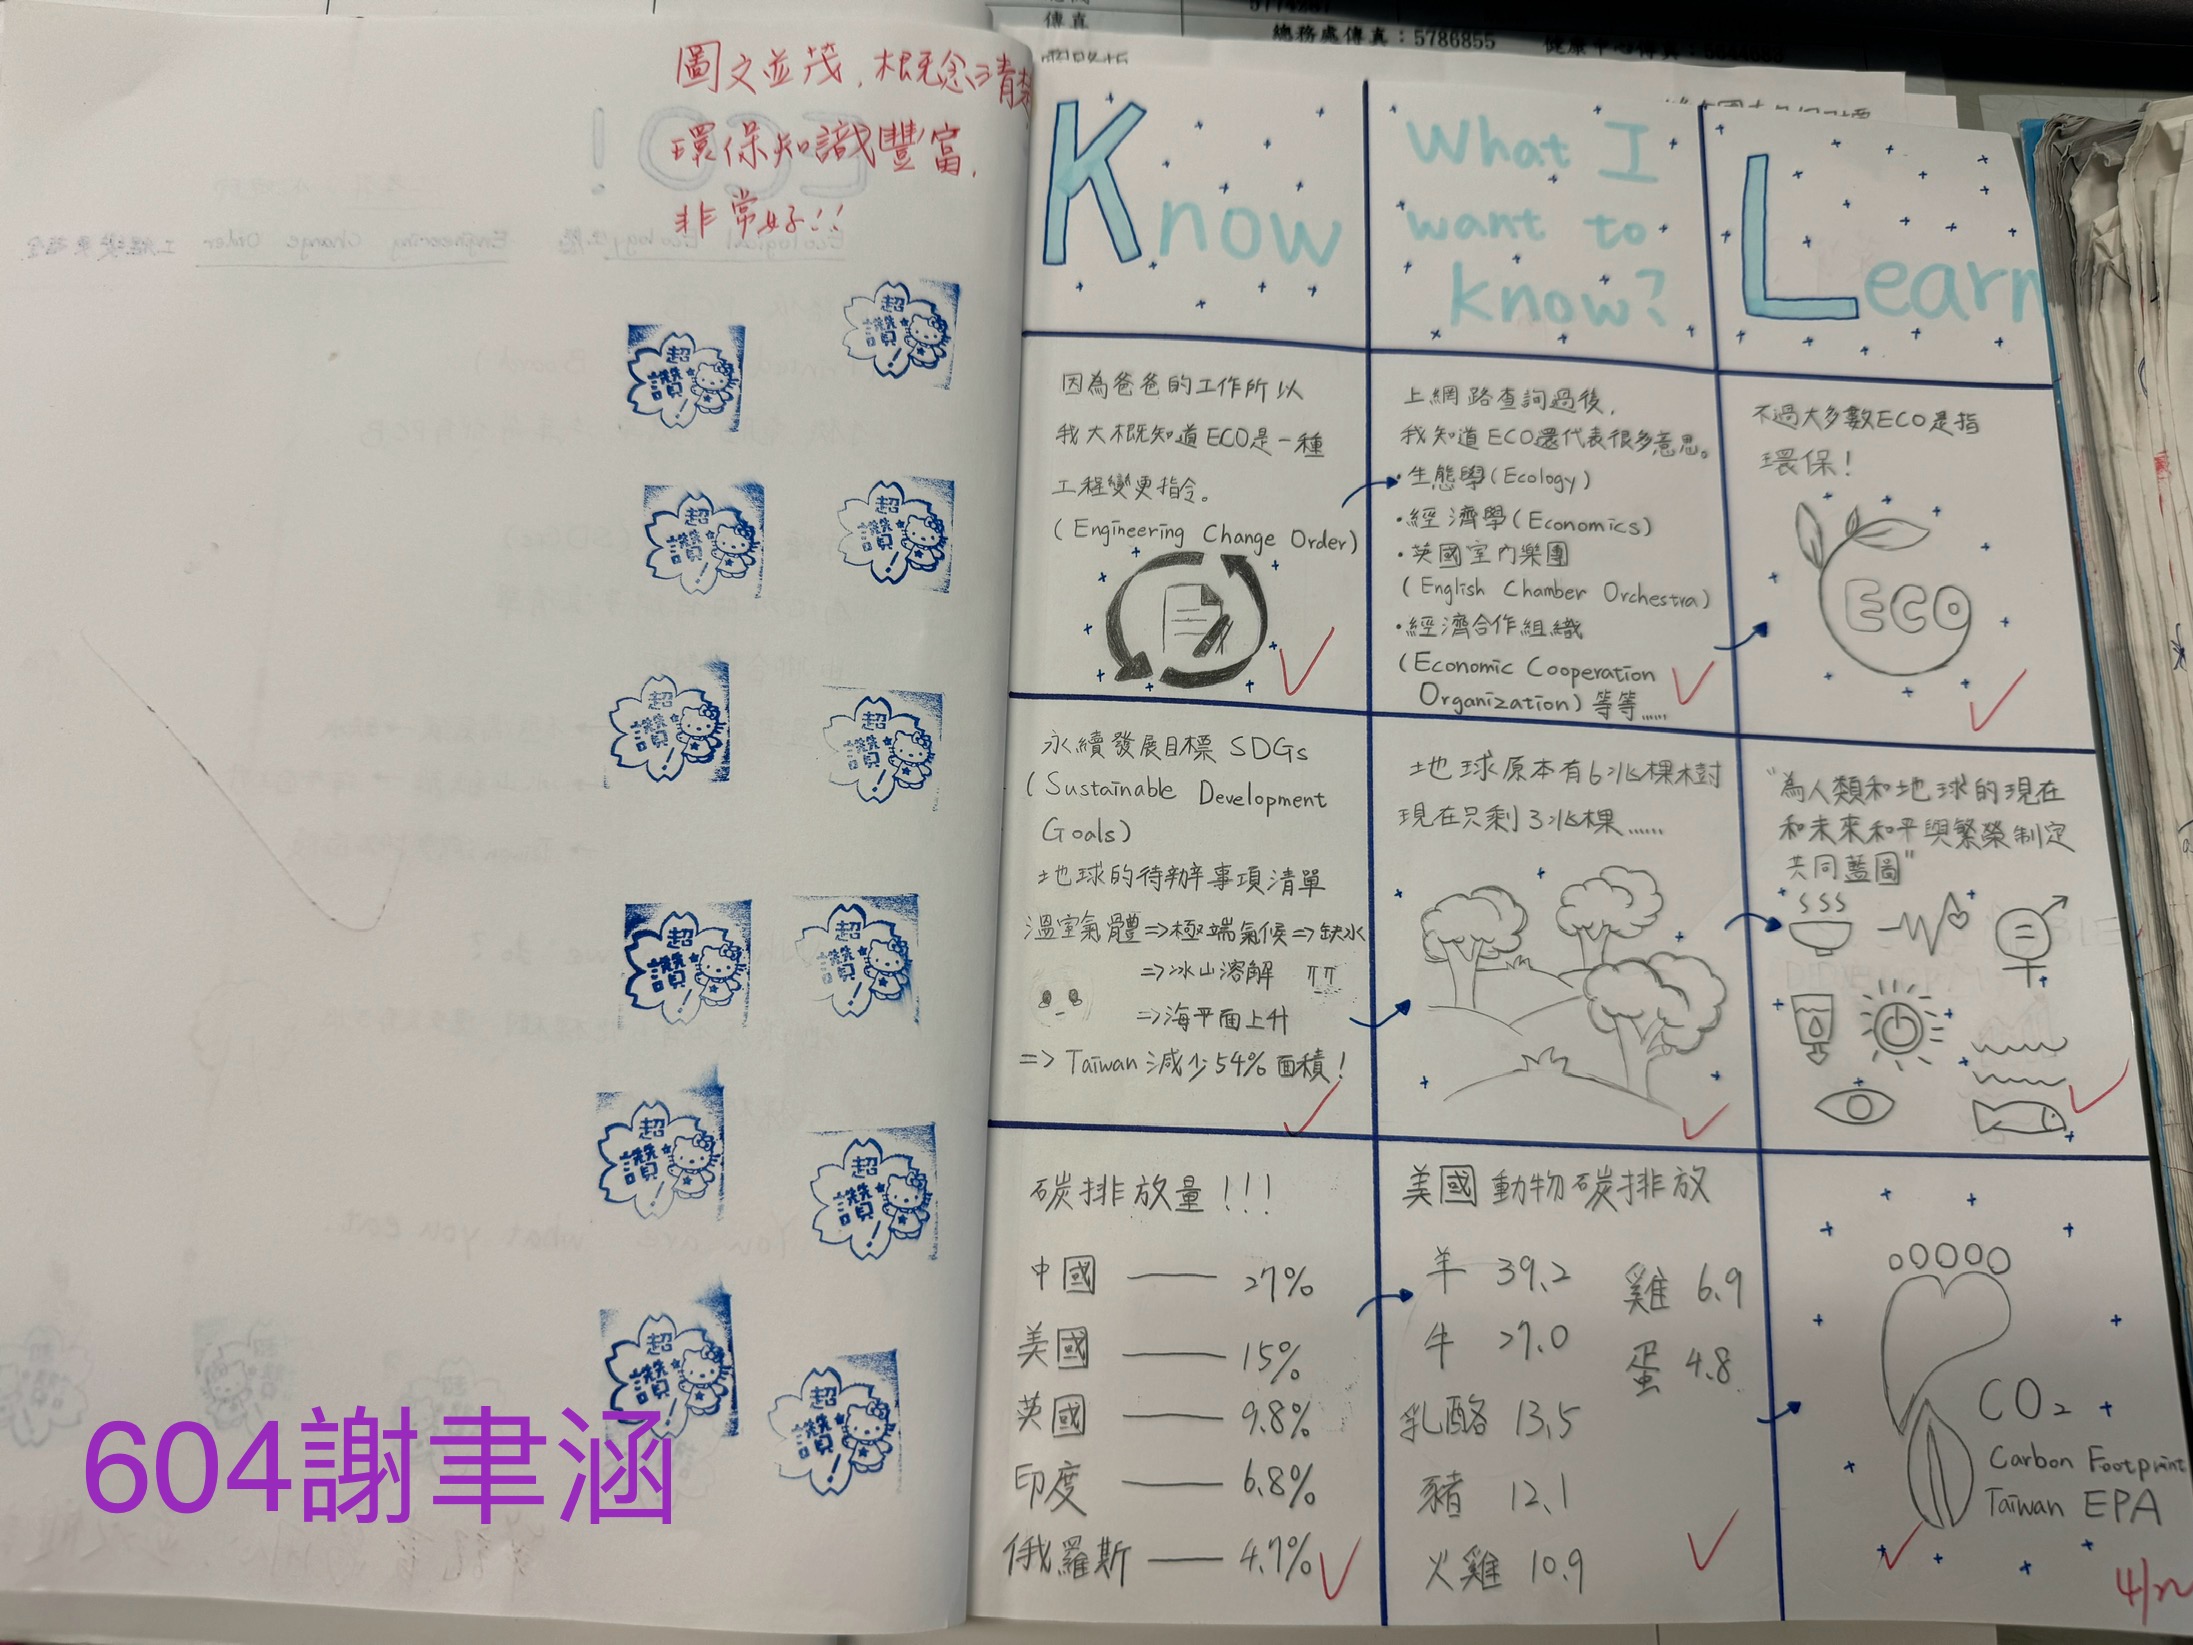 傳真
總務處傳真：5786855
圖文並茂，概念清楚
環保知識豐富，
非常好!!
超讚!
超讚!
超讚!
超讚!
超讚!
超讚!
超讚!
超讚!
超讚!
超讚!
超讚!
超讚!
604謝聿涵
Know
因為爸爸的工作所以
我大概知道ECO是一種
工程變更指令。
(Engineering Change Order)
永續發展目標 SDGs
(Sustainable Development
Goals)
地球的待辦事項清單
溫室氣體=>極端氣候=>缺水
=>冰山溶解
=>海平面上升
=> Taiwan 減少54%面積!
碳排放量!!!
中國 —— 27%
美國 —— 15%
英國 —— 9.8%
印度 —— 6.8%
俄羅斯 —— 4.7%
What I
want to
know?
上網路查詢過後,
我知道ECO還代表很多意思。
·生態學(Ecology)
·經濟學(Economics)
·英國室內樂團
(English Chamber Orchestra)
·經濟合作組織
(Economic Cooperation
Organization)等等……
地球原本有6兆棵樹
現在只剩3兆棵……
美國動物碳排放
羊 39.2
牛 27.0
乳酪 13.5
豬 12.1
火雞 10.9
雞 6.9
蛋 4.8
Learn
不過大多數ECO是指
環保!
ECO
"為人類和地球的現在
和未來和平與繁榮制定
共同藍圖"
CO₂
Carbon Footprint
Taiwan EPA